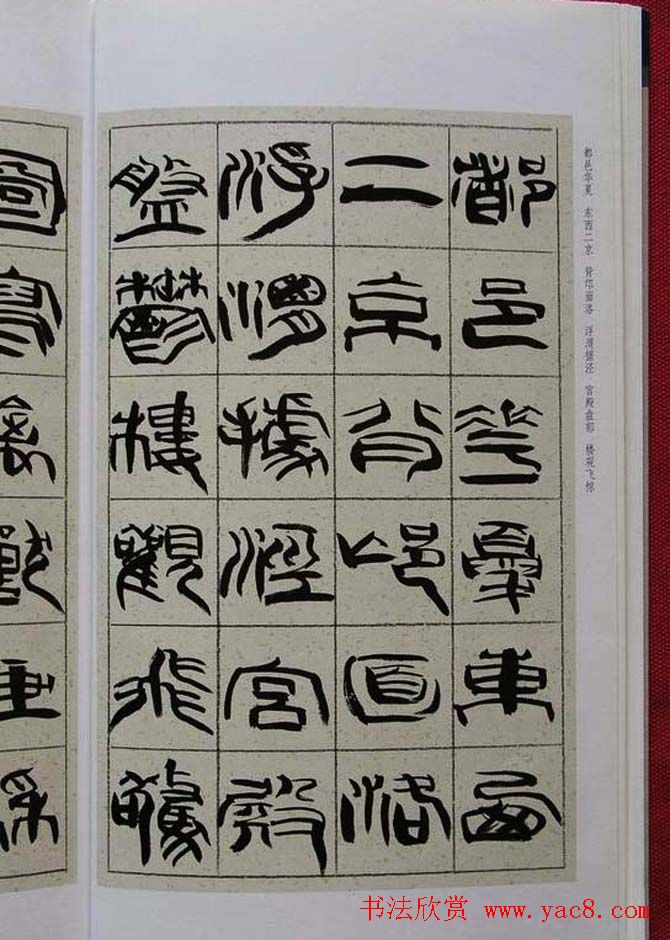 都邑华夏 东西二京 背邙面洛 浮渭据泾 宫殿盘郁 楼观飞惊
都邑華夏東西
二京背邙面洛
浮渭據涇宮殿
盤鬱樓觀飛驚
圖寫
书法欣赏 www.yac8.com